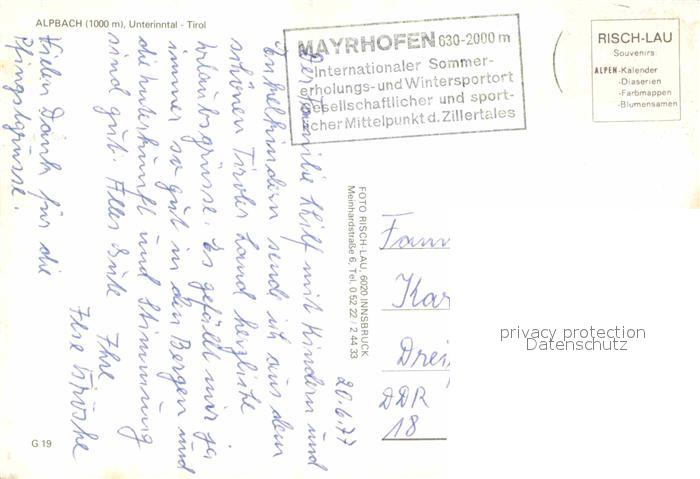 ALPBACH (1000 m), Unterinntal - Tirol
MAYRHOFEN 630-2000 m
Internationaler Sommer-
erholungs- und Wintersportort
Gesellschaftlicher und sport-
licher Mittelpunkt d. Zillertales
RISCH-LAU
Souvenirs:
ALPEN-Kalender
-Diaserien
-Farbmappen
-Blumensamen
Der Familie mit Kindern und
Enkelkindern sende ich aus dem
schönen Tiroler Land herzliche
Urlaubsgrüsse. Es gefällt mir ja
immer so gut in den Bergen und
die Unterkunft und Stimmung
sind gut. Alles Gute Ihre
Ilse
Vielen Dank für die
Pfingstgrüsse.
20.6.77
FOTO RISCH-LAU, 6020 INNSBRUCK
Meinhardstraße 6, Tel. 0 52 22 / 2 44 33
Fam
Kar
Drei
DDR
18
privacy protection
Datenschutz
G 19